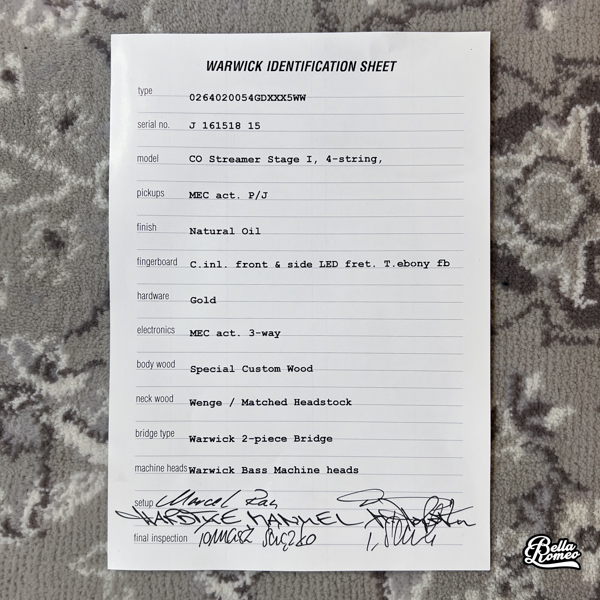 WARWICK IDENTIFICATION SHEET
type 0264020054GDXXX5WW
serial no. J 161518 15
model CO Streamer Stage I, 4-string,
pickups MEC act. P/J
finish Natural Oil
fingerboard C.inl. front & side LED fret. T.ebony fb
hardware Gold
electronics MEC act. 3-way
body wood Special Custom Wood
neck wood Wenge / Matched Headstock
bridge type Warwick 2-piece Bridge
machine heads Warwick Bass Machine heads
setup Marcel
HARDTKE MANUEL
final inspection Tomasz
Bella
Romeo